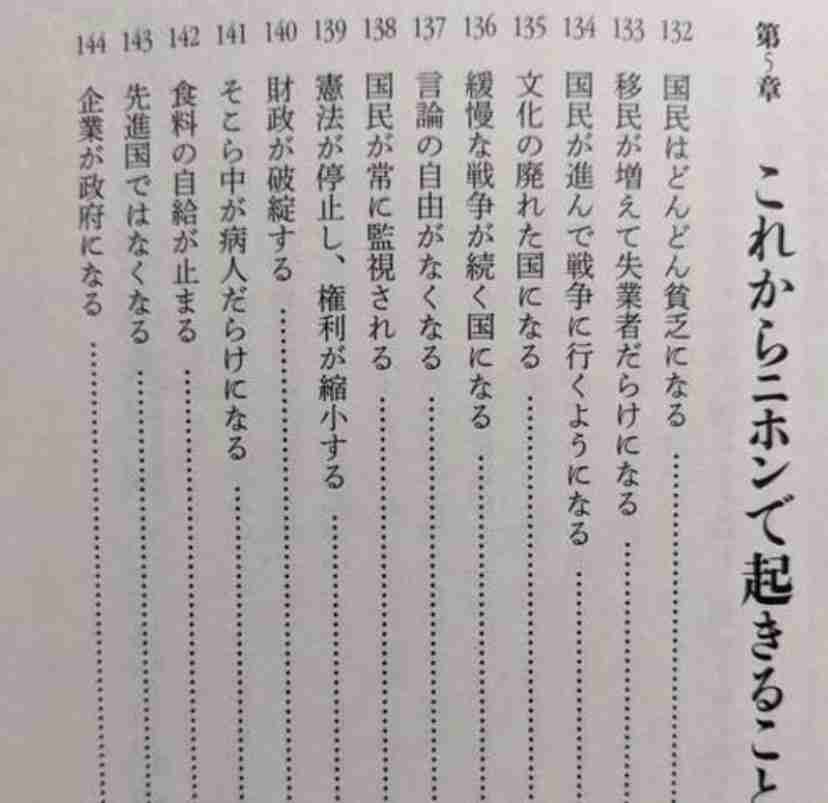 第5章 これからニホンで起きること
132 国民はどんどん貧乏になる
133 移民が増えて失業者だらけになる
134 国民が進んで戦争に行くようになる
135 文化の廃れた国になる
136 緩慢な戦争が続く国になる
137 言論の自由がなくなる
138 国民が常に監視される
139 憲法が停止し、権利が縮小する
140 財政が破綻する
141 そこら中が病人だらけになる
142 食料の自給が止まる
143 先進国ではなくなる
144 企業が政府になる